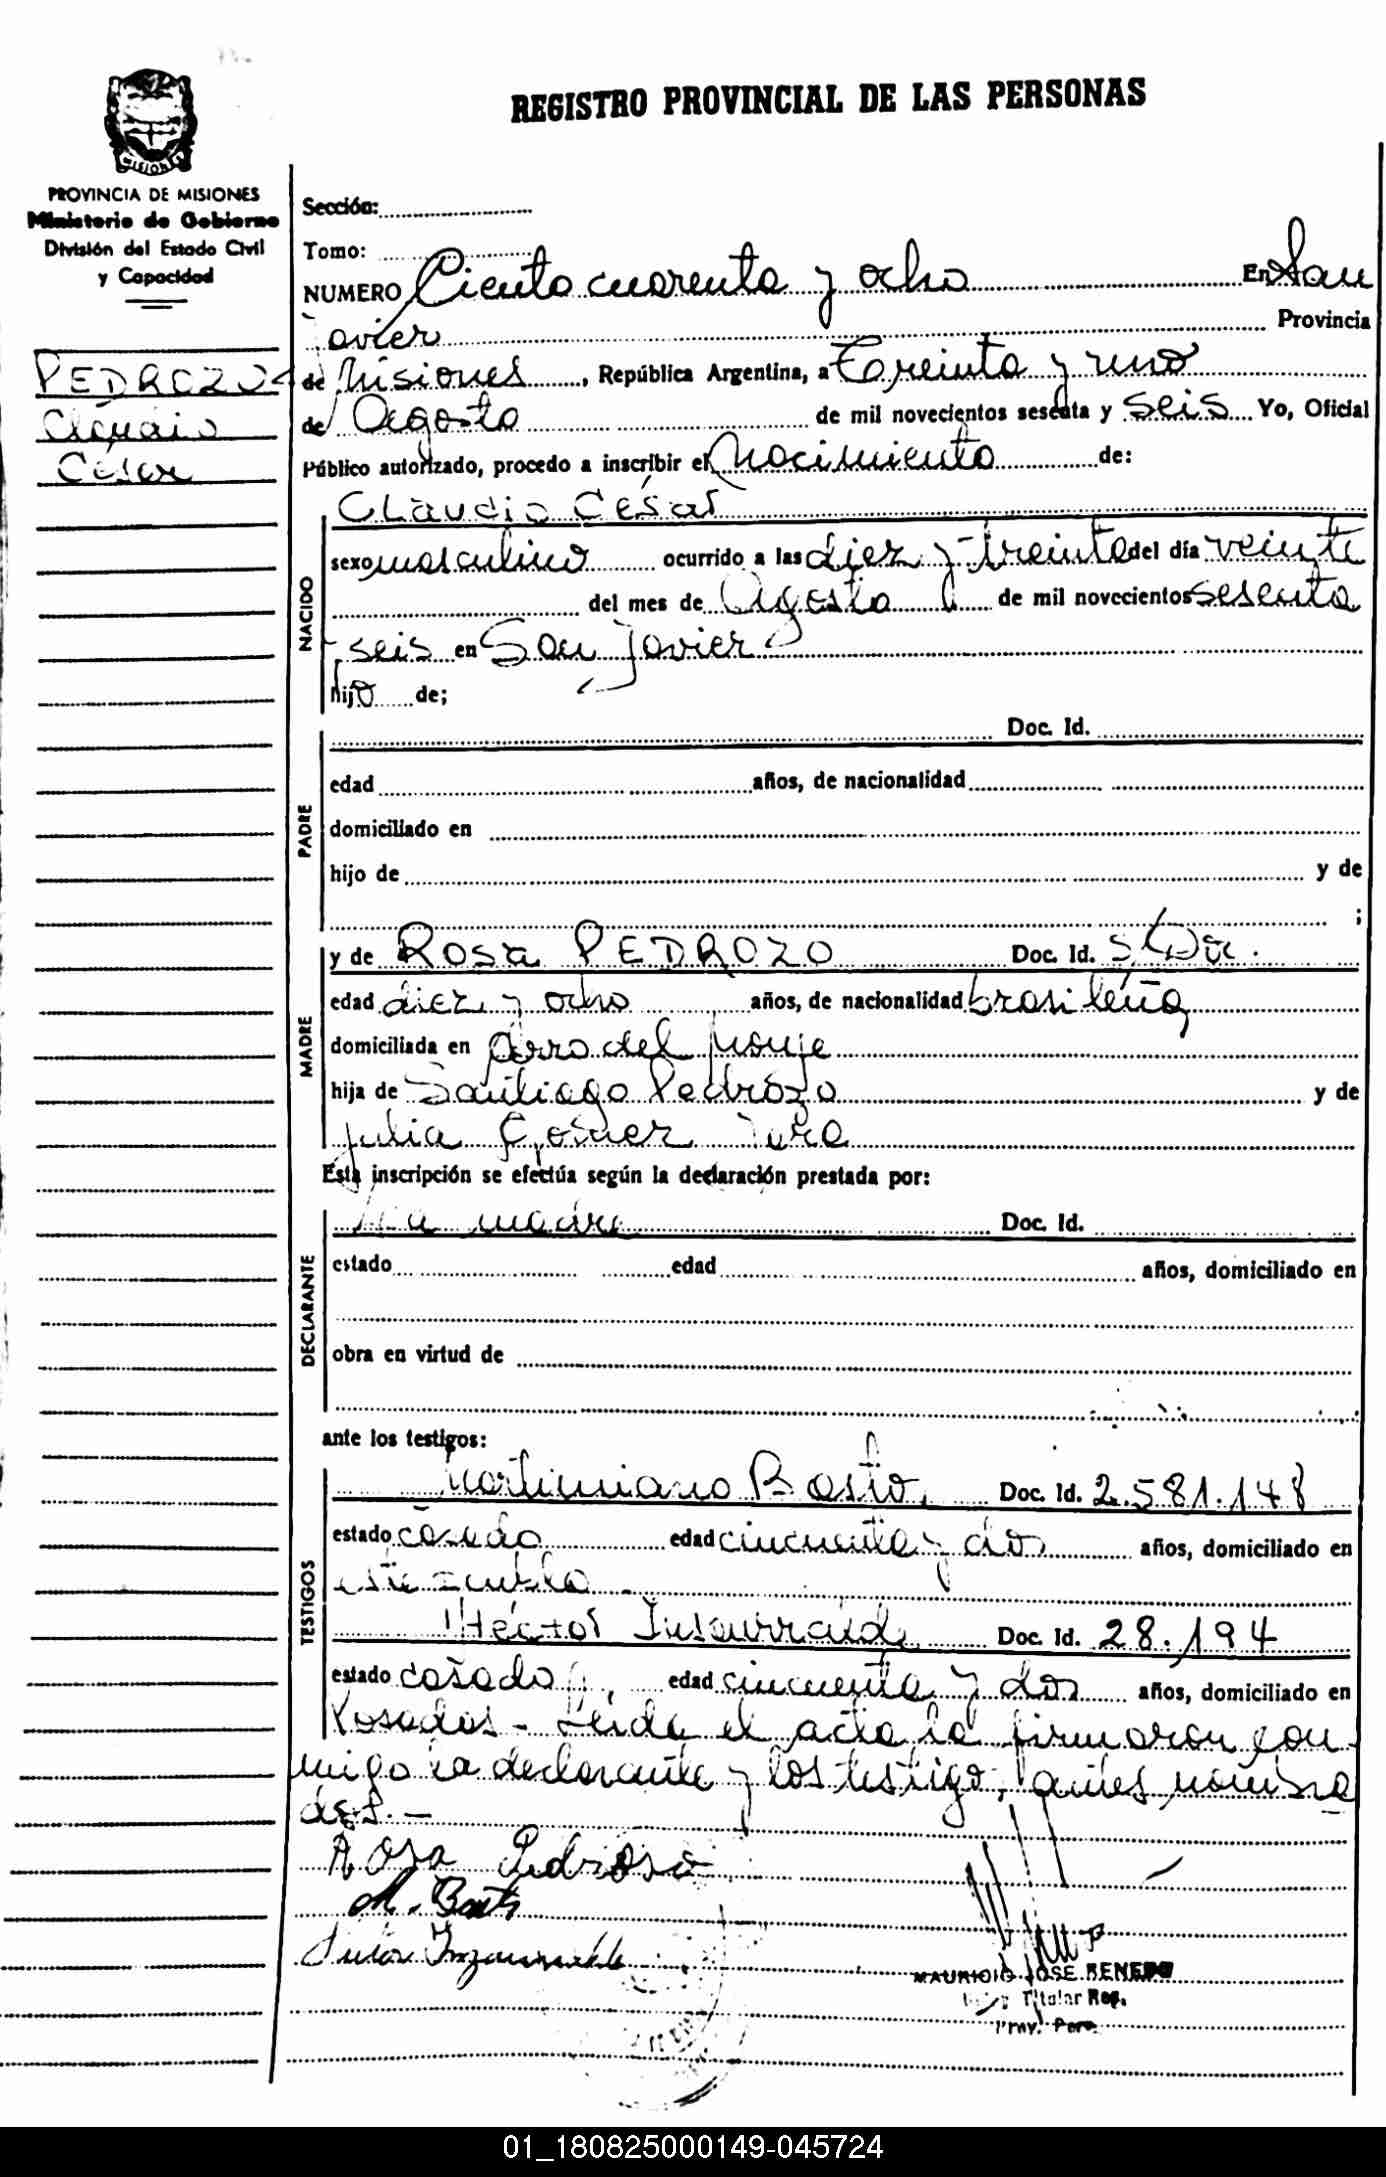 REGISTRO PROVINCIAL DE LAS PERSONAS
MISIONES
PROVINCIA DE MISIONES
Ministerio de Gobierno
División del Estado Civil
y Capacidad
PEDROZO
Claudio
César
Sección:
Tomo:
NUMERO Ciento cuarenta y ocho En San
Javier Provincia
de Misiones, República Argentina, a Treinta y uno
de Agosto de mil novecientos sesenta y seis Yo, Oficial
Público autorizado, procedo a inscribir el Nacimiento de:
NACIDO
Claudio César
sexo masculino ocurrido a las diez y treinta del día veinte
del mes de Agosto de mil novecientos sesenta
y seis en San Javier
hijo de;
PADRE
Doc. Id.
edad años, de nacionalidad
domiciliado en
hijo de y de
;
MADRE
y de Rosa PEDROZO Doc. Id.
edad diez y ocho años, de nacionalidad brasileña
domiciliada en del Monje
hija de Santiago Pedrozo y de
Julia
Esta inscripción se efectúa según la declaración prestada por:
DECLARANTE
La madre Doc. Id.
estado edad años, domiciliado en
obra en virtud de
ante los testigos:
TESTIGOS
Martimiano Doc. Id. 2.581.148
estado casado edad cincuenta y dos años, domiciliado en
este pueblo
Héctor Doc. Id. 28.194
estado casado edad cincuenta y dos años, domiciliado en
Posadas - Leida el acta la firmaron con
migo la declarante y los testigos antes nombra
dos.-
Rosa Pedroso
MAURICIO JOSE
Titular Reg.
Prov. Pers.
01_180825000149-045724